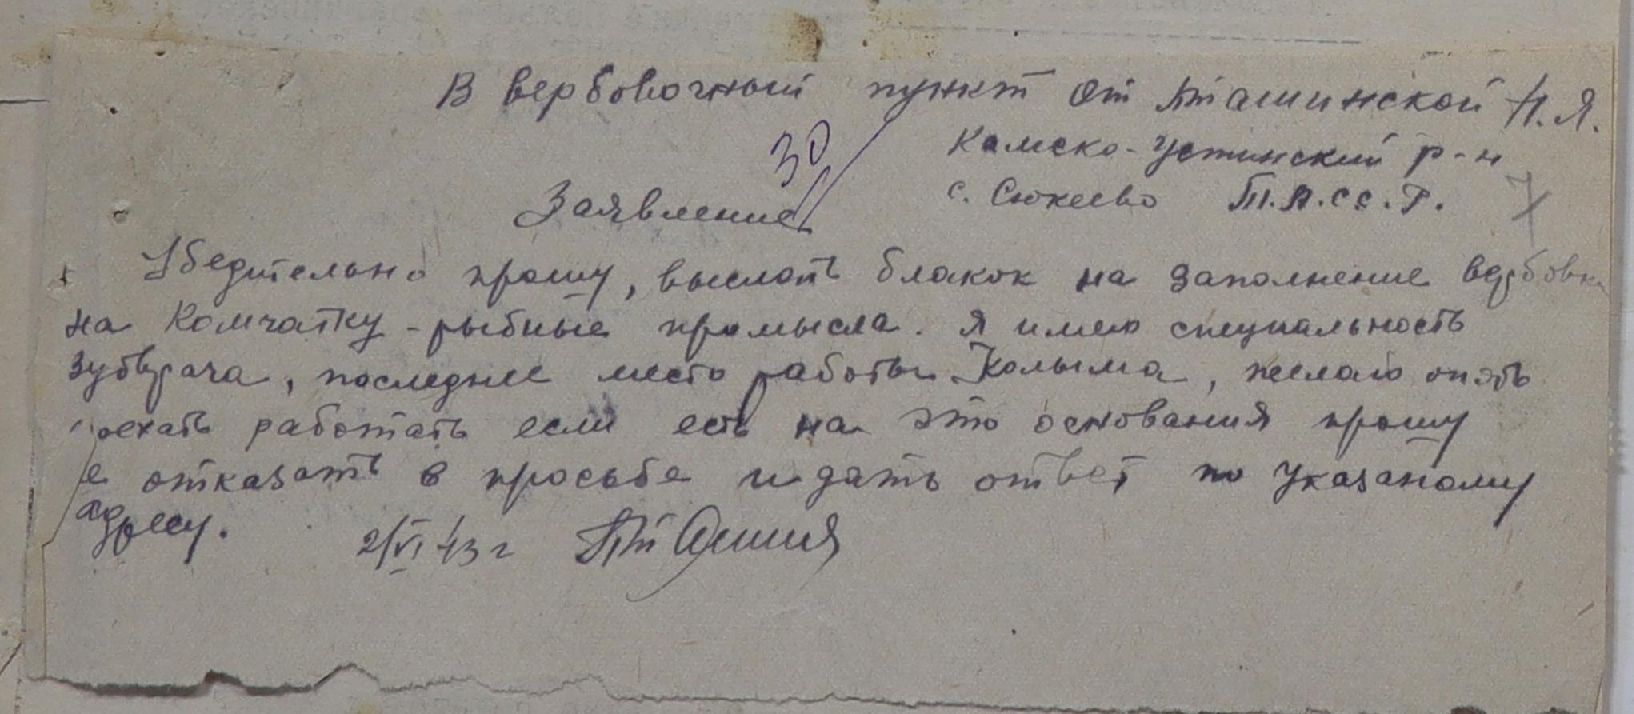 В вербовочный пункт от Пташинской Н.Я.
Камско-Устинский р-н
с. Сюкеево Т.А.СС.Р.
30
Заявление
Убедительно прошу, выслать блакок на заполнение вербовки
на Комчатку - рыбные промысла. Я имею специальность
зубврача, последнее место работы Колыма, желаю опять
поехать работать если есть на это основания прошу
е отказать в просьбе и дать ответ по указаному
адресу. 2/VI 43 г